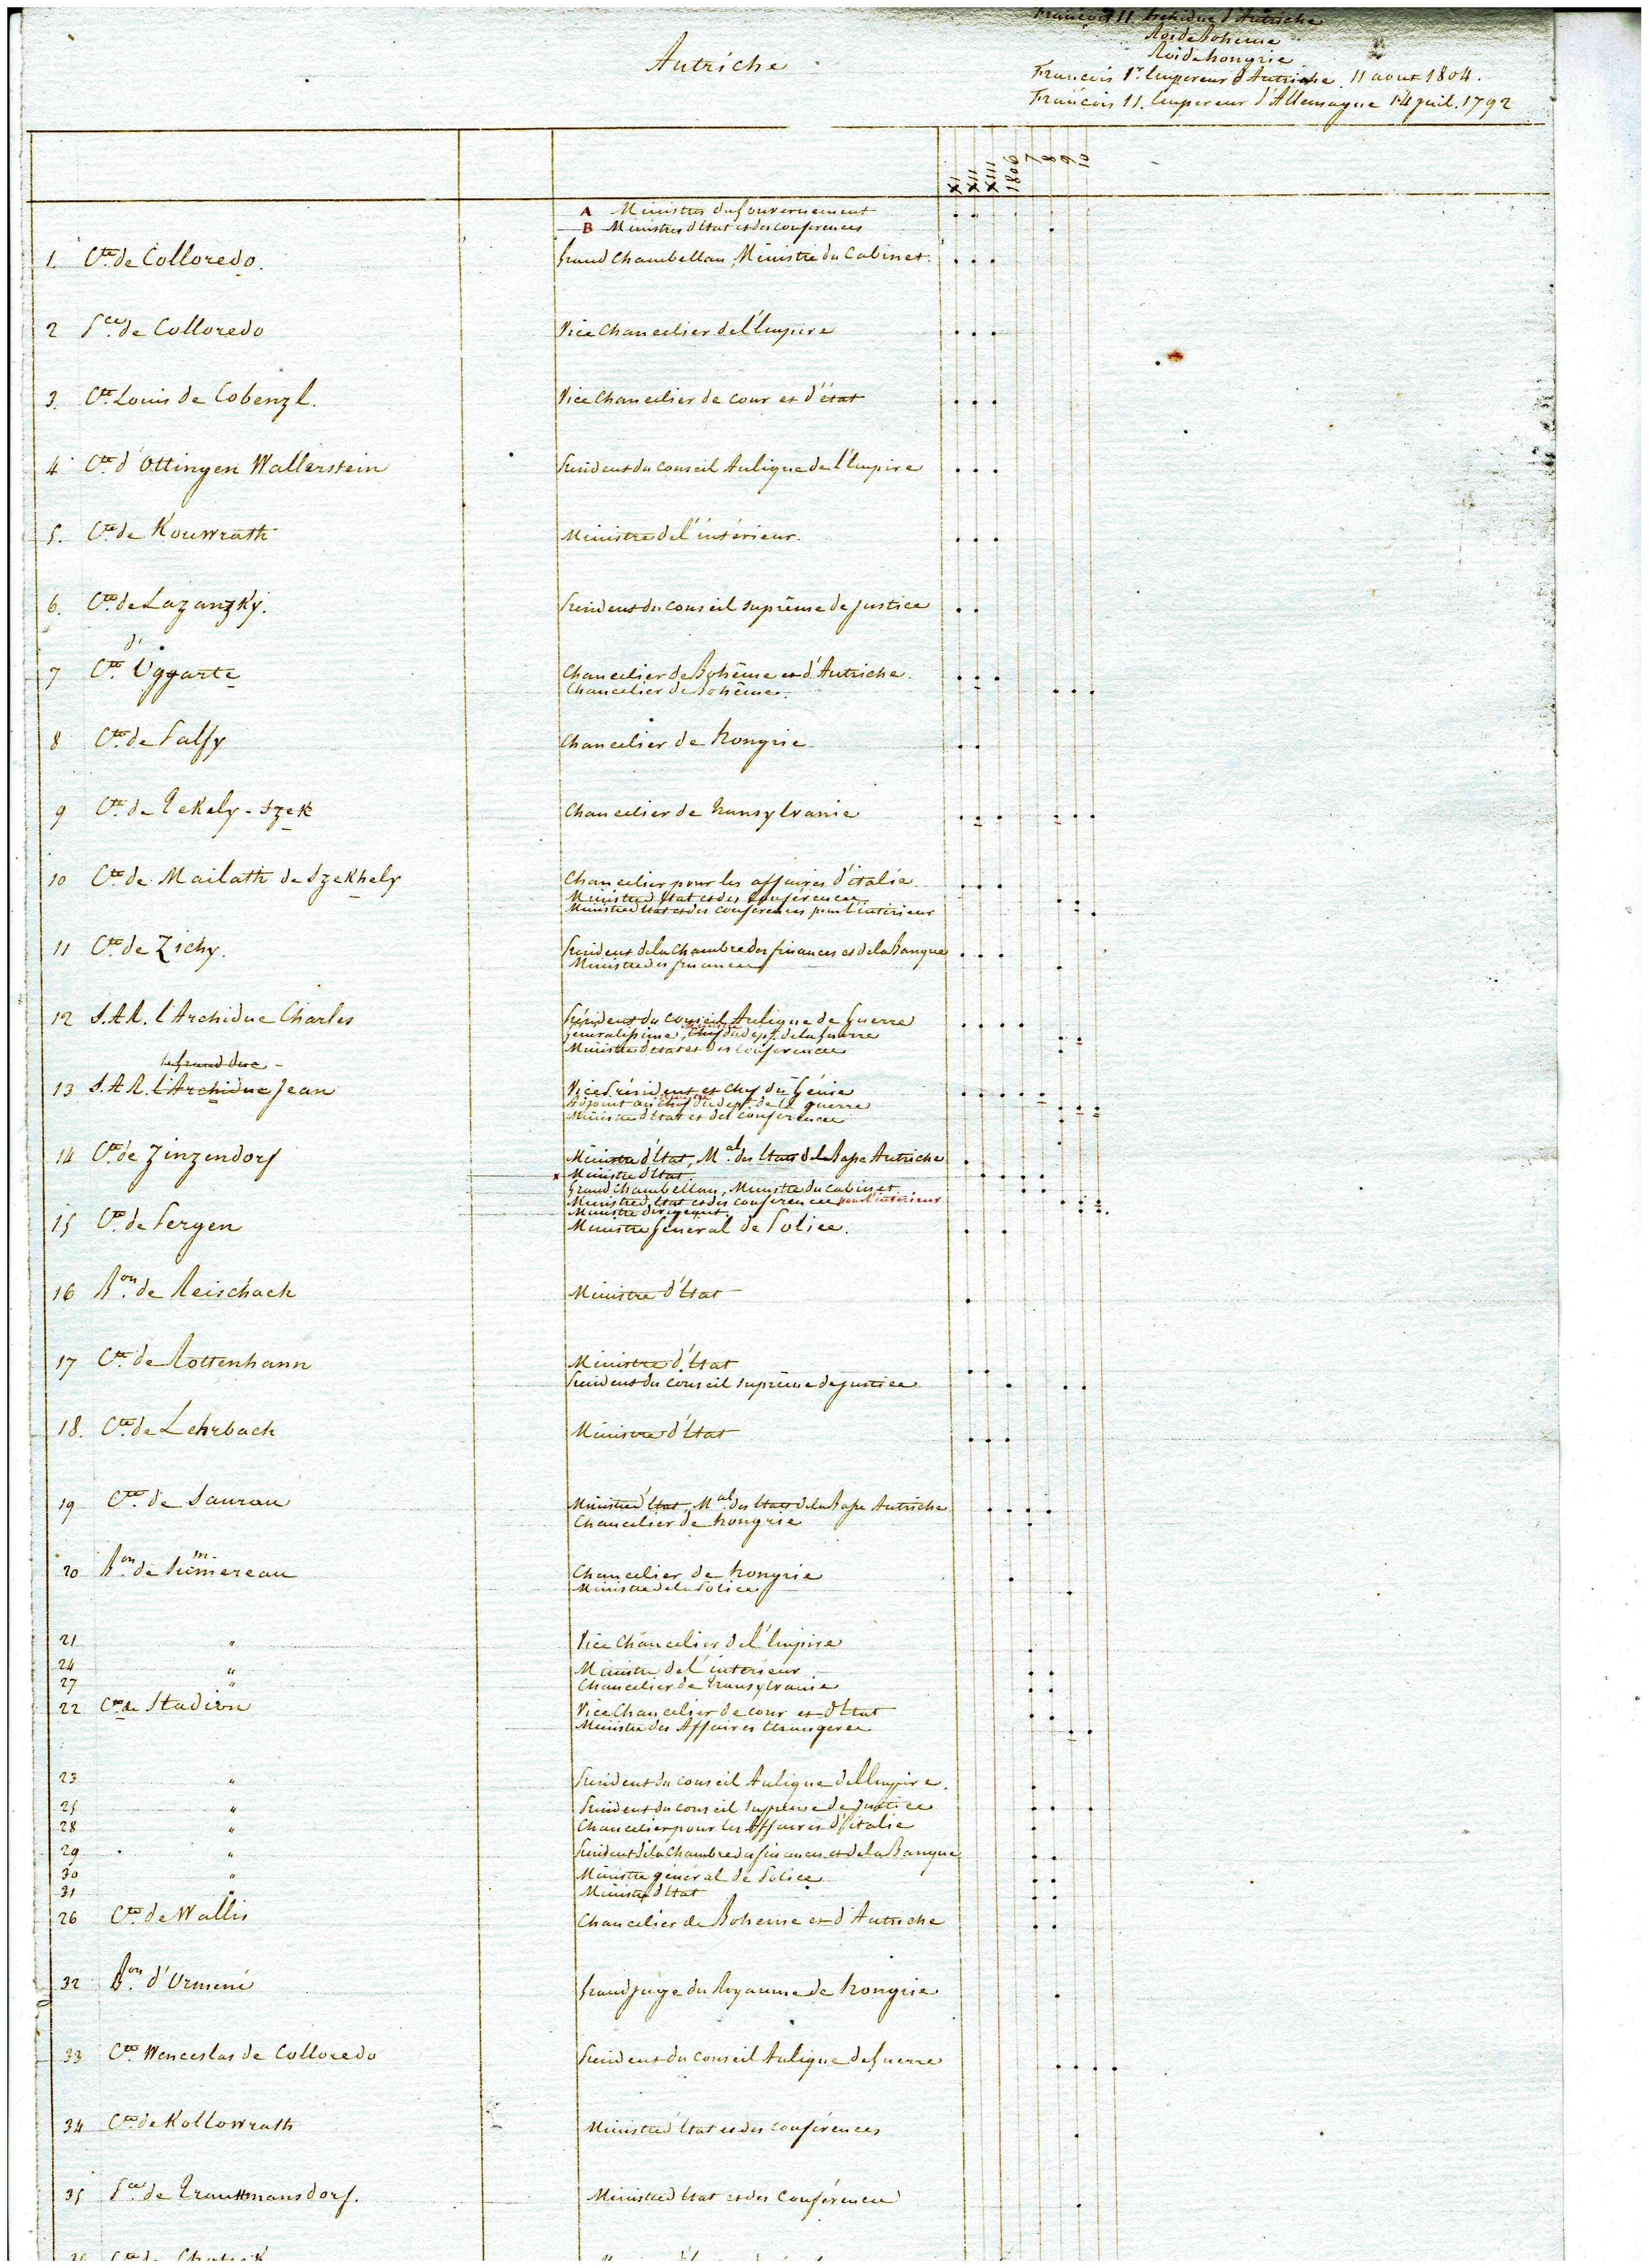 Autriche
François II Archiduc d'Autriche
Roi de Boheme
Roi de hongrie
François 1r. Empereur d'Autriche 11 aout 1804.
François II. Empereur d'Allemagne 14 juil. 1792
XI XII XIII 1806 7 8 9 10
A Ministres du Gouvernement
B Ministres d'Etat et des conferences
1. Cte. de Colloredo. Grand Chambellan, Ministre du Cabinet.
2 Pce. de Colloredo Vice Chancelier de l'Empire
3. Cte. Louis de Cobenzl. Vice Chancelier de cour et d'état
4 Cte. d'Ottingen Wallerstein President du conseil Aulique de l'Empire
5. Cte. de Kouwrath Ministre de l'intérieur.
6. Cte. de Lazanzky. President du conseil suprême de justice
d'
7 Cte. Uggarte Chancelier de Bohême et d'Autriche.
Chancelier de Bohême.
8 Cte. de Palfy Chancelier de hongrie
9 Cte. de Tekely-Szek Chancelier de Transylvanie
10 Cte. de Mailath de Szekhely Chancelier pour les affaires d'italie
Ministre d'Etat et des Conférences
Ministre d'Etat et des conferences pour l'intérieur
11 Cte. de Zichy. President de la Chambre des finances et de la Banque
Ministre des finances
12 S.A.R. l'Archiduc Charles Président du conseil Aulique de Guerre
Généralissime, Chef du dept. de la Guerre
Ministre d'état et des conferences
le Grand Duc
13 S.A.R. l'Archiduc Jean Vice Président et chef du Génie
Adjoint au Chef du dept. de la guerre
Ministre d'Etat et des conferences
14 Cte. de Zinzendorf Ministre d'Etat, Mal. des Etats de la Basse Autriche
x Ministre d'Etat.
Grand Chambellan, Ministre du cabinet
Ministre d'Etat et des conferences pour l'intérieur
Ministre dirigeant.
15 Cte. de Pergen Ministre Général de Police.
16 Bon. de Reischach Ministre d'Etat
17 Cte. de Rottenhann Ministre d'Etat
President du conseil suprême de justice
18. Cte. de Lehrbach Ministre d'Etat
19 Cte. de Saurau Ministre d'Etat, Mal. des Etats de la Basse Autriche
Chancelier de hongrie
20 Bon. de Sumereau Chancelier de hongrie
Ministre de la Police
21 " Vice Chancelier de l'Empire
24 " Ministre de l'intérieur
27 " Chancelier de Transylvanie
22 Cte. de Stadion Vice Chancelier de cour et d'Etat
Ministre des Affaires Etrangeres
23 " President du conseil Aulique de l'Empire.
25 " President du conseil Suprême de Justice
28 " Chancelier pour les Affaires d'italie
29 " President de la Chambre des finances et de la Banque
30 " Ministre général de Police
31 " Ministre d'Etat
26 Cte. de Wallis Chancelier de Boheme et d'Autriche
32 Bon. d'Urmeni Grand juge du Royaume de hongrie
33 Cte. Wenceslas de Colloredo President du conseil Aulique de Guerre
34 Cte. de Kollowrath Ministre d'Etat et des conférences
35 Pce. de Trauttmansdorf. Ministre d'Etat et des Conférences